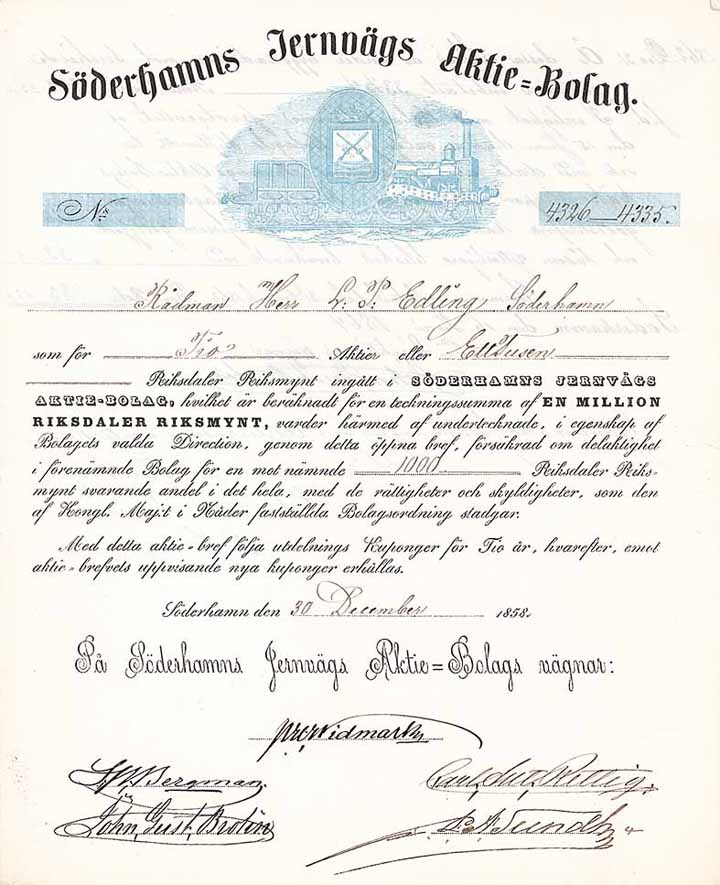 Söderhamns Jernvägs Aktie=Bolag.
No 4326–4335.
Rådman Herr L. P. Edling, Söderhamn
som för Tio Aktier eller Ett Tusen
Riksdaler Riksmynt ingått i SÖDERHAMNS JERNVÄGS
AKTIE-BOLAG, hvilket är beräknadt för en teckningssumma af EN MILLION
RIKSDALER RIKSMYNT, varder härmed af undertecknade, i egenskap af
Bolagets valda Direction, genom detta öppna bref, försäkrad om delaktighet
i förenämnde Bolag för en mot nämnde 1000 Riksdaler Riks-
mynt svarande andel i det hela, med de rättigheter och skyldigheter, som den
af Kongl. Maj:t i Nåder fastställda Bolagsordning stadgar.
Med detta aktie-bref följa utdelnings Kuponger för Tio år, hvarefter, emot
aktie-brefvets uppvisande nya kuponger erhållas.
Söderhamn den 30 December 1858.
På Söderhamns Jernvägs Aktie=Bolags vägnar:
Widmark
Bergman. Rettig.
John, Gust. Brolin